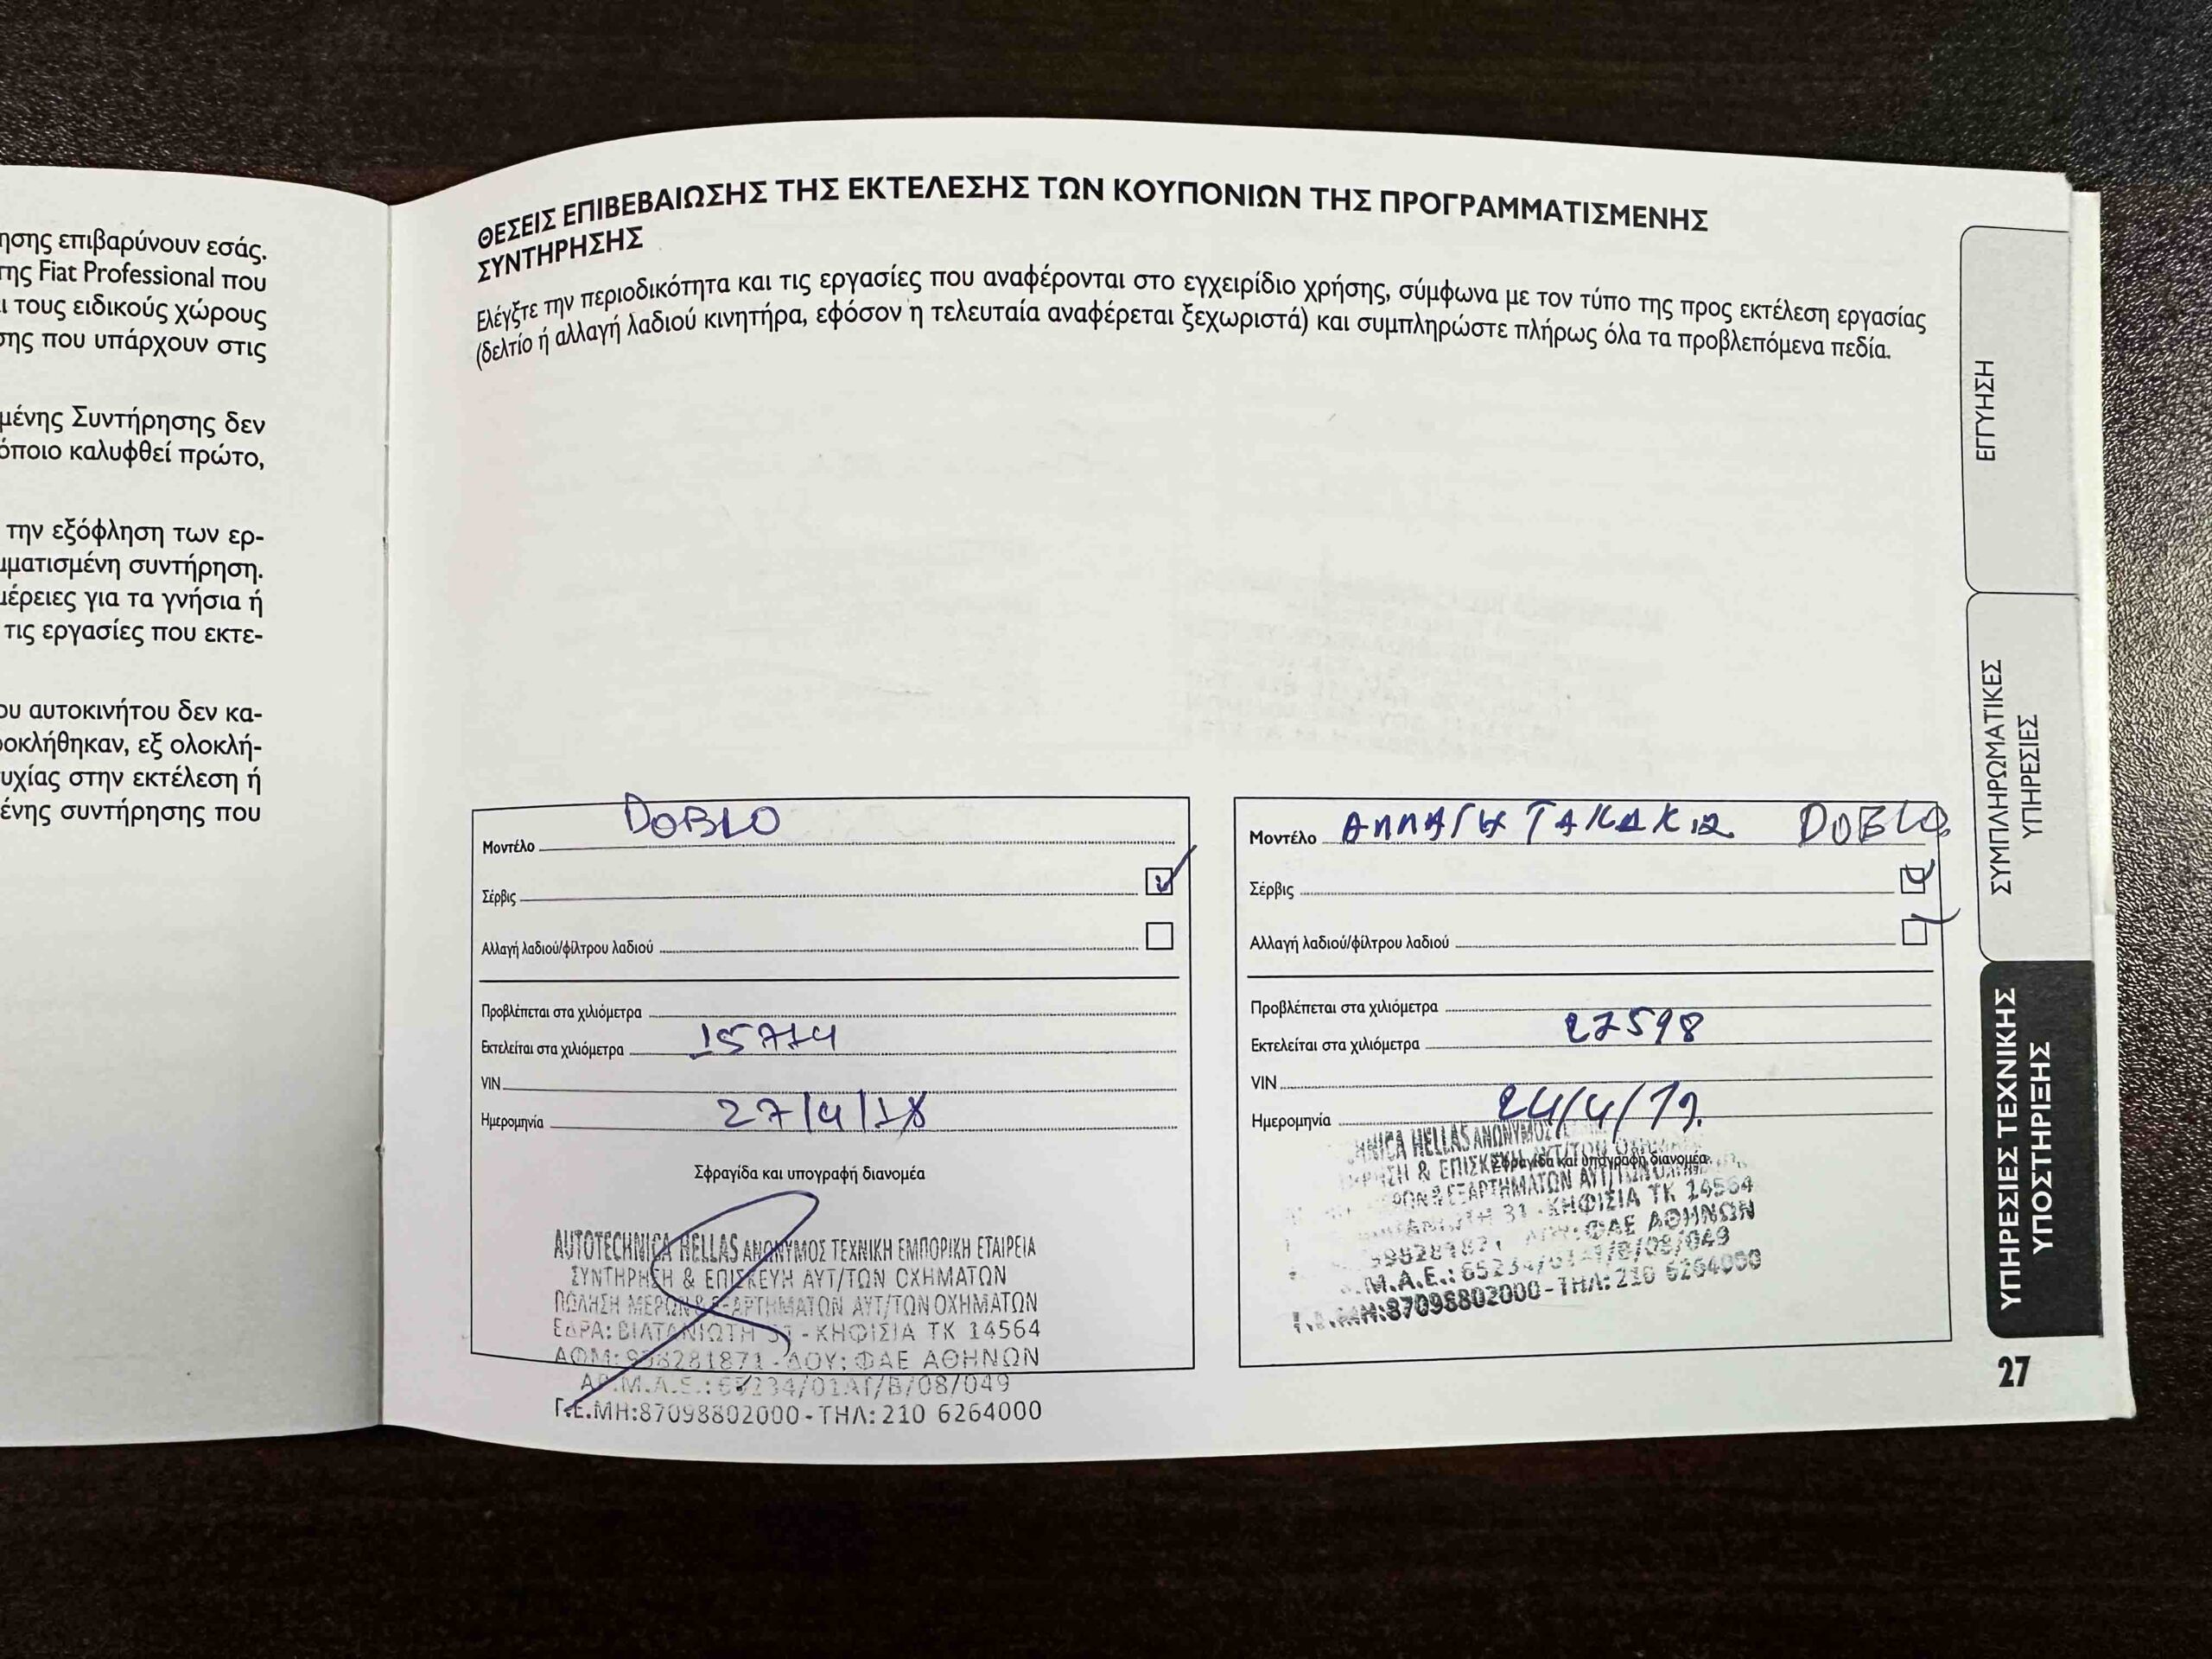 ησης επιβαρύνουν εσάς.
της Fiat Professional που
ι τους ειδικούς χώρους
σης που υπάρχουν στις
μένης Συντήρησης δεν
όποιο καλυφθεί πρώτο,
την εξόφληση των ερ-
μματισμένη συντήρηση.
μέρειες για τα γνήσια ή
τις εργασίες που εκτε-
ου αυτοκινήτου δεν κα-
ροκλήθηκαν, εξ ολοκλή-
υχίας στην εκτέλεση ή
ένης συντήρησης που
ΘΕΣΕΙΣ ΕΠΙΒΕΒΑΙΩΣΗΣ ΤΗΣ ΕΚΤΕΛΕΣΗΣ ΤΩΝ ΚΟΥΠΟΝΙΩΝ ΤΗΣ ΠΡΟΓΡΑΜΜΑΤΙΣΜΕΝΗΣ
ΣΥΝΤΗΡΗΣΗΣ
Ελέγξτε την περιοδικότητα και τις εργασίες που αναφέρονται στο εγχειρίδιο χρήσης, σύμφωνα με τον τύπο της προς εκτέλεση εργασίας
(δελτίο ή αλλαγή λαδιού κινητήρα, εφόσον η τελευταία αναφέρεται ξεχωριστά) και συμπληρώστε πλήρως όλα τα προβλεπόμενα πεδία.
Μοντέλο DOBLO
Σέρβις
Αλλαγή λαδιού/φίλτρου λαδιού
Προβλέπεται στα χιλιόμετρα
Εκτελείται στα χιλιόμετρα 15714
VIN
Ημερομηνία 27/4/18
Σφραγίδα και υπογραφή διανομέα
AUTOTECHNICA HELLAS ΑΝΩΝΥΜΟΣ ΤΕΧΝΙΚΗ ΕΜΠΟΡΙΚΗ ΕΤΑΙΡΕΙΑ
ΣΥΝΤΗΡΗΣΗ & ΕΠΙΣΚΕΥΗ ΑΥΤ/ΤΩΝ ΟΧΗΜΑΤΩΝ
ΠΩΛΗΣΗ ΜΕΡΩΝ & ΕΞΑΡΤΗΜΑΤΩΝ ΑΥΤ/ΤΩΝ ΟΧΗΜΑΤΩΝ
ΕΔΡΑ: ΒΙΛΤΑΝΙΩΤΗ 31 - ΚΗΦΙΣΙΑ ΤΚ 14564
ΑΦΜ: 998281871 - ΔΟΥ: ΦΑΕ ΑΘΗΝΩΝ
ΑΡ.Μ.Α.Ε.: 65234/01ΑΤ/Β/08/049
Γ.Ε.ΜΗ:87098802000 - ΤΗΛ: 210 6264000
Μοντέλο ΑΛΛΑΓΗ ΤΑΚΑΚΙΑ DOBLO
Σέρβις
Αλλαγή λαδιού/φίλτρου λαδιού
Προβλέπεται στα χιλιόμετρα
Εκτελείται στα χιλιόμετρα 27598
VIN
Ημερομηνία 24/4/19.
Σφραγίδα και υπογραφή διανομέα
HELLAS ΑΝΩΝΥΜΟΣ
& ΕΠΙΣΚΕΥΗ ΑΥΤ/ΤΩΝ
& ΕΞΑΡΤΗΜΑΤΩΝ ΑΥΤ/ΤΩΝ
31 - ΚΗΦΙΣΙΑ ΤΚ 14564
ΦΑΕ ΑΘΗΝΩΝ
.Μ.Α.Ε.: 65234/01ΑΤ/Β/08/049
Γ.Ε.ΜΗ:87098802000 - ΤΗΛ: 210 6264000
ΕΓΓΥΗΣΗ
ΣΥΜΠΛΗΡΩΜΑΤΙΚΕΣ
ΥΠΗΡΕΣΙΕΣ
ΥΠΗΡΕΣΙΕΣ ΤΕΧΝΙΚΗΣ
ΥΠΟΣΤΗΡΙΞΗΣ
27